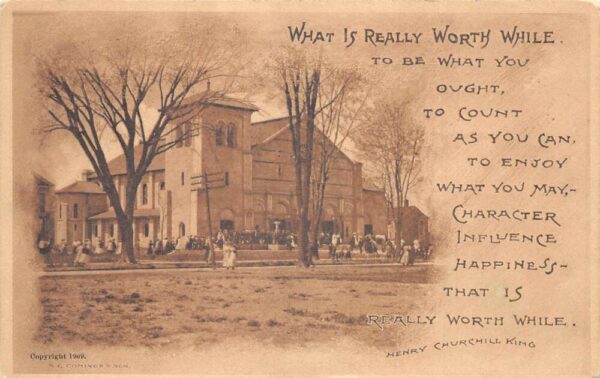 WHAT IS REALLY WORTH WHILE.
TO BE WHAT YOU
OUGHT,
TO COUNT
AS YOU CAN,
TO ENJOY
WHAT YOU MAY,-
CHARACTER
INFLUENCE
HAPPINESS-
THAT IS
REALLY WORTH WHILE.
HENRY CHURCHILL KING
Copyright 1909.
A. G. COMINGS & SON.